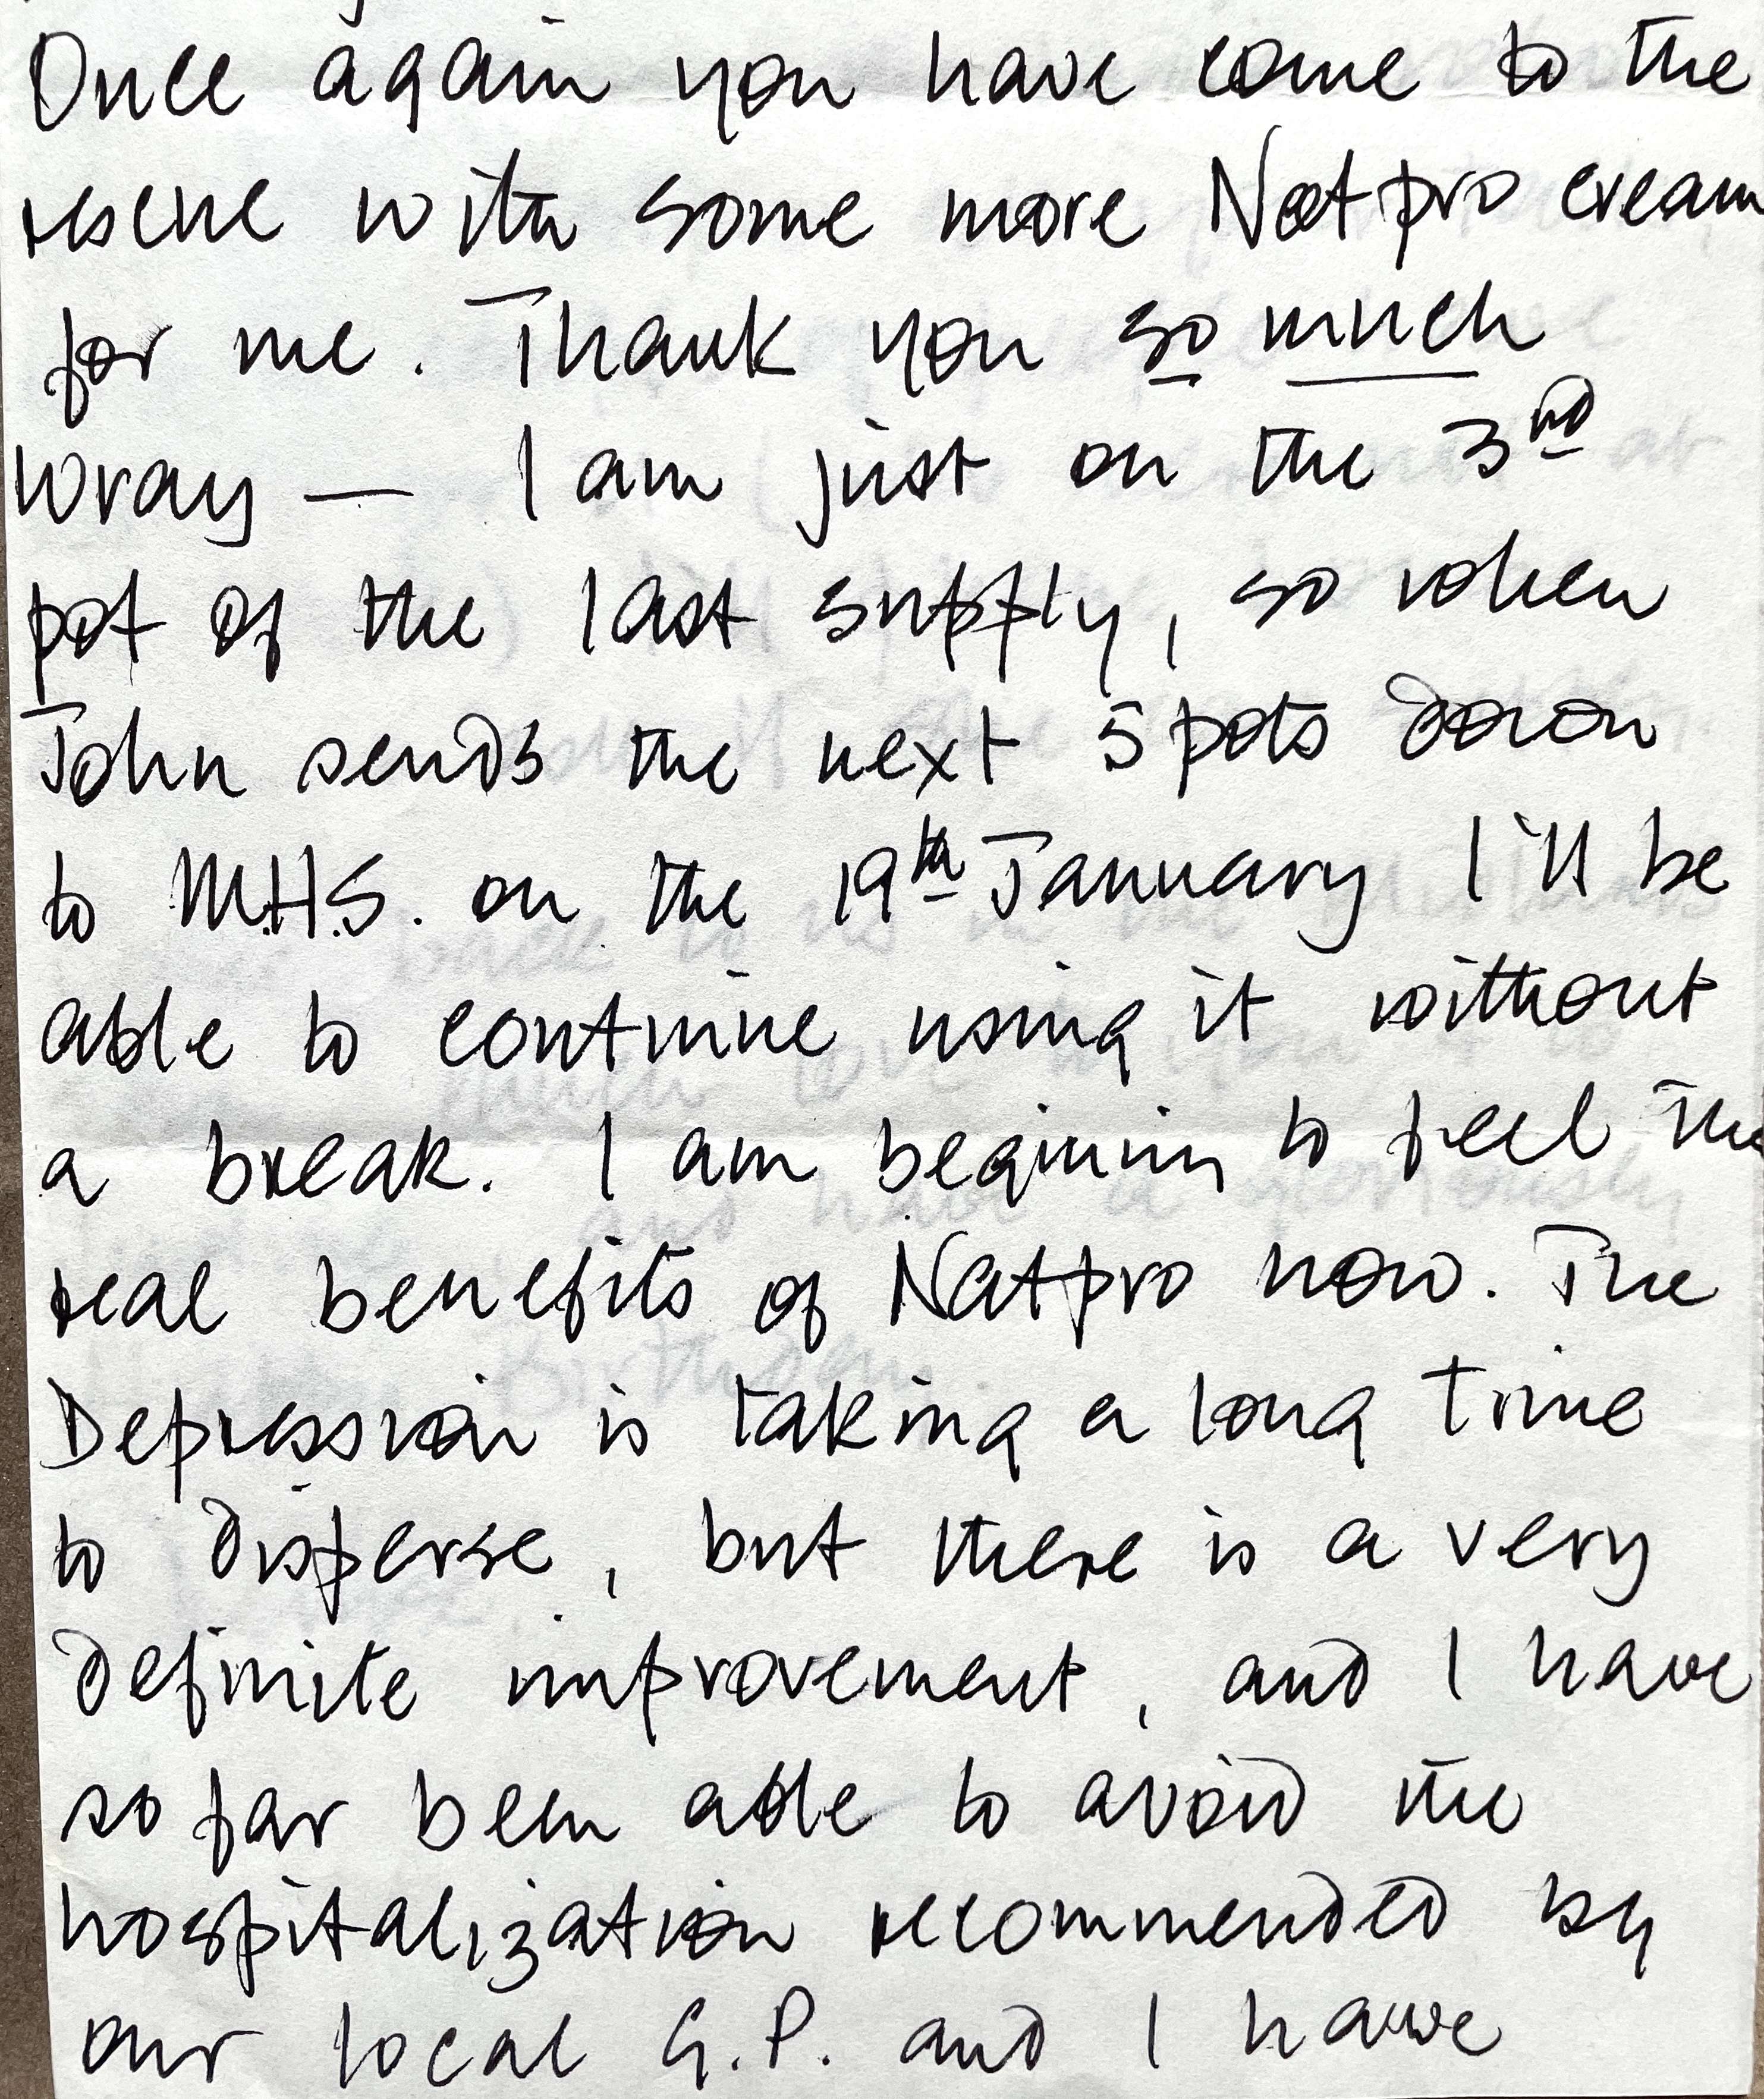 Once again you have come to the
rescue with some more Natpro cream
for me. Thank you so much
Wray — I am just on the 3rd
pot of the last supply, so when
John sends the next 5 pots down
to M.H.S. on the 19th January I'll be
able to continue using it without
a break. I am beginning to feel the
real benefits of Natpro now. The
Depression is taking a long time
to disperse, but there is a very
definite improvement, and I have
so far been able to avoid the
hospitalization recommended by
our local G.P. and I have